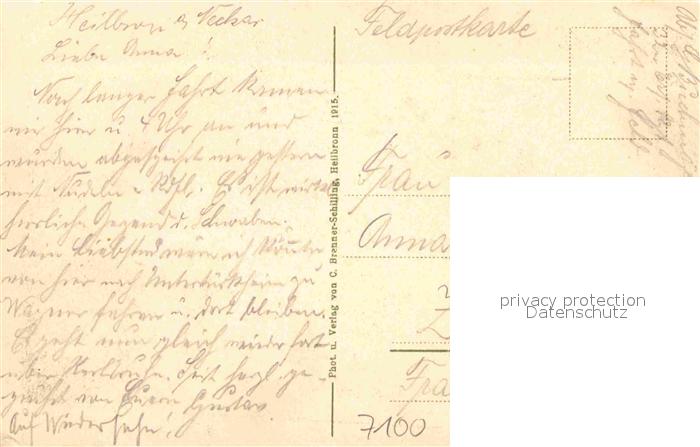 Heilbronn a/Neckar
Liebe Anna!
Nach langer Fahrt kamen
wir hier u. 4 Uhr an und
wurden abgespeist wie gestern
mit Nudeln u. Rdfl. Es ist eine
herrliche Gegend d. Schwaben.
Mein Liebstes wäre ich könnte
von hier nach Untertürkheim zu
Wagner fahren u. dort bleiben.
Es geht nun gleich wieder fort
über Karlsruhe. Seit herzl. ge-
grüßt von Eurem Gustav
Auf Wiedersehn!
Phot. u. Verlag von C. Brenner-Schilling, Heilbronn 1915.
Feldpostkarte
Frau
Anna
Fra
7100
privacy protection
Datenschutz